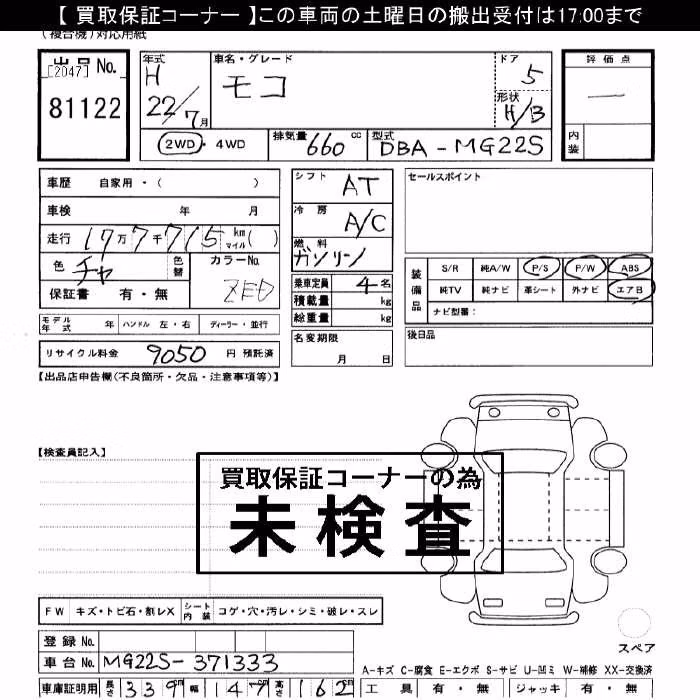 【 買取保証コーナー 】この車両の土曜日の搬出受付は17:00まで
(複合機)対応用紙
出品 No. 年式 車名・グレード ドア 評価点
[2047] H モコ 5 —
81122 22/7月 形状 H/B
2WD・4WD 排気量 660 cc 型式 DBA-MG22S 内装
車歴 自家用・( ) シフト AT セールスポイント
車検 年 月 冷房 A/C
走行 17万7千715 km マイル( ) 燃料 ガソリン
色 チャ 色替 カラーNo. ZED 装備品 S/R 純A/W P/S P/W ABS
保証書 有・無 乗車定員 4名 純TV 純ナビ 革シート 外ナビ エアB
積載量 kg ナビ型番:
モデル年式 年 ハンドル 左・右 ディーラー・並行 総重量 kg
リサイクル料金 9050 円 預託済 名変期限 月 日 後日品
【出品店申告欄(不良箇所・欠品・注意事項等)】
【検査員記入】
買取保証コーナーの為
未検査
FW キズ・トビ石・割レX シート内装 コゲ・穴・汚レ・シミ・破レ・スレ
登録 No.
スペア
車台 No. MG22S-371333
A-キズ C-腐食 E-エクボ S-サビ U-凹ミ W-補修 XX-交換済
車庫証明用 長さ 339cm 幅 147cm 高さ 162cm 工具 有・無 ジャッキ 有・無